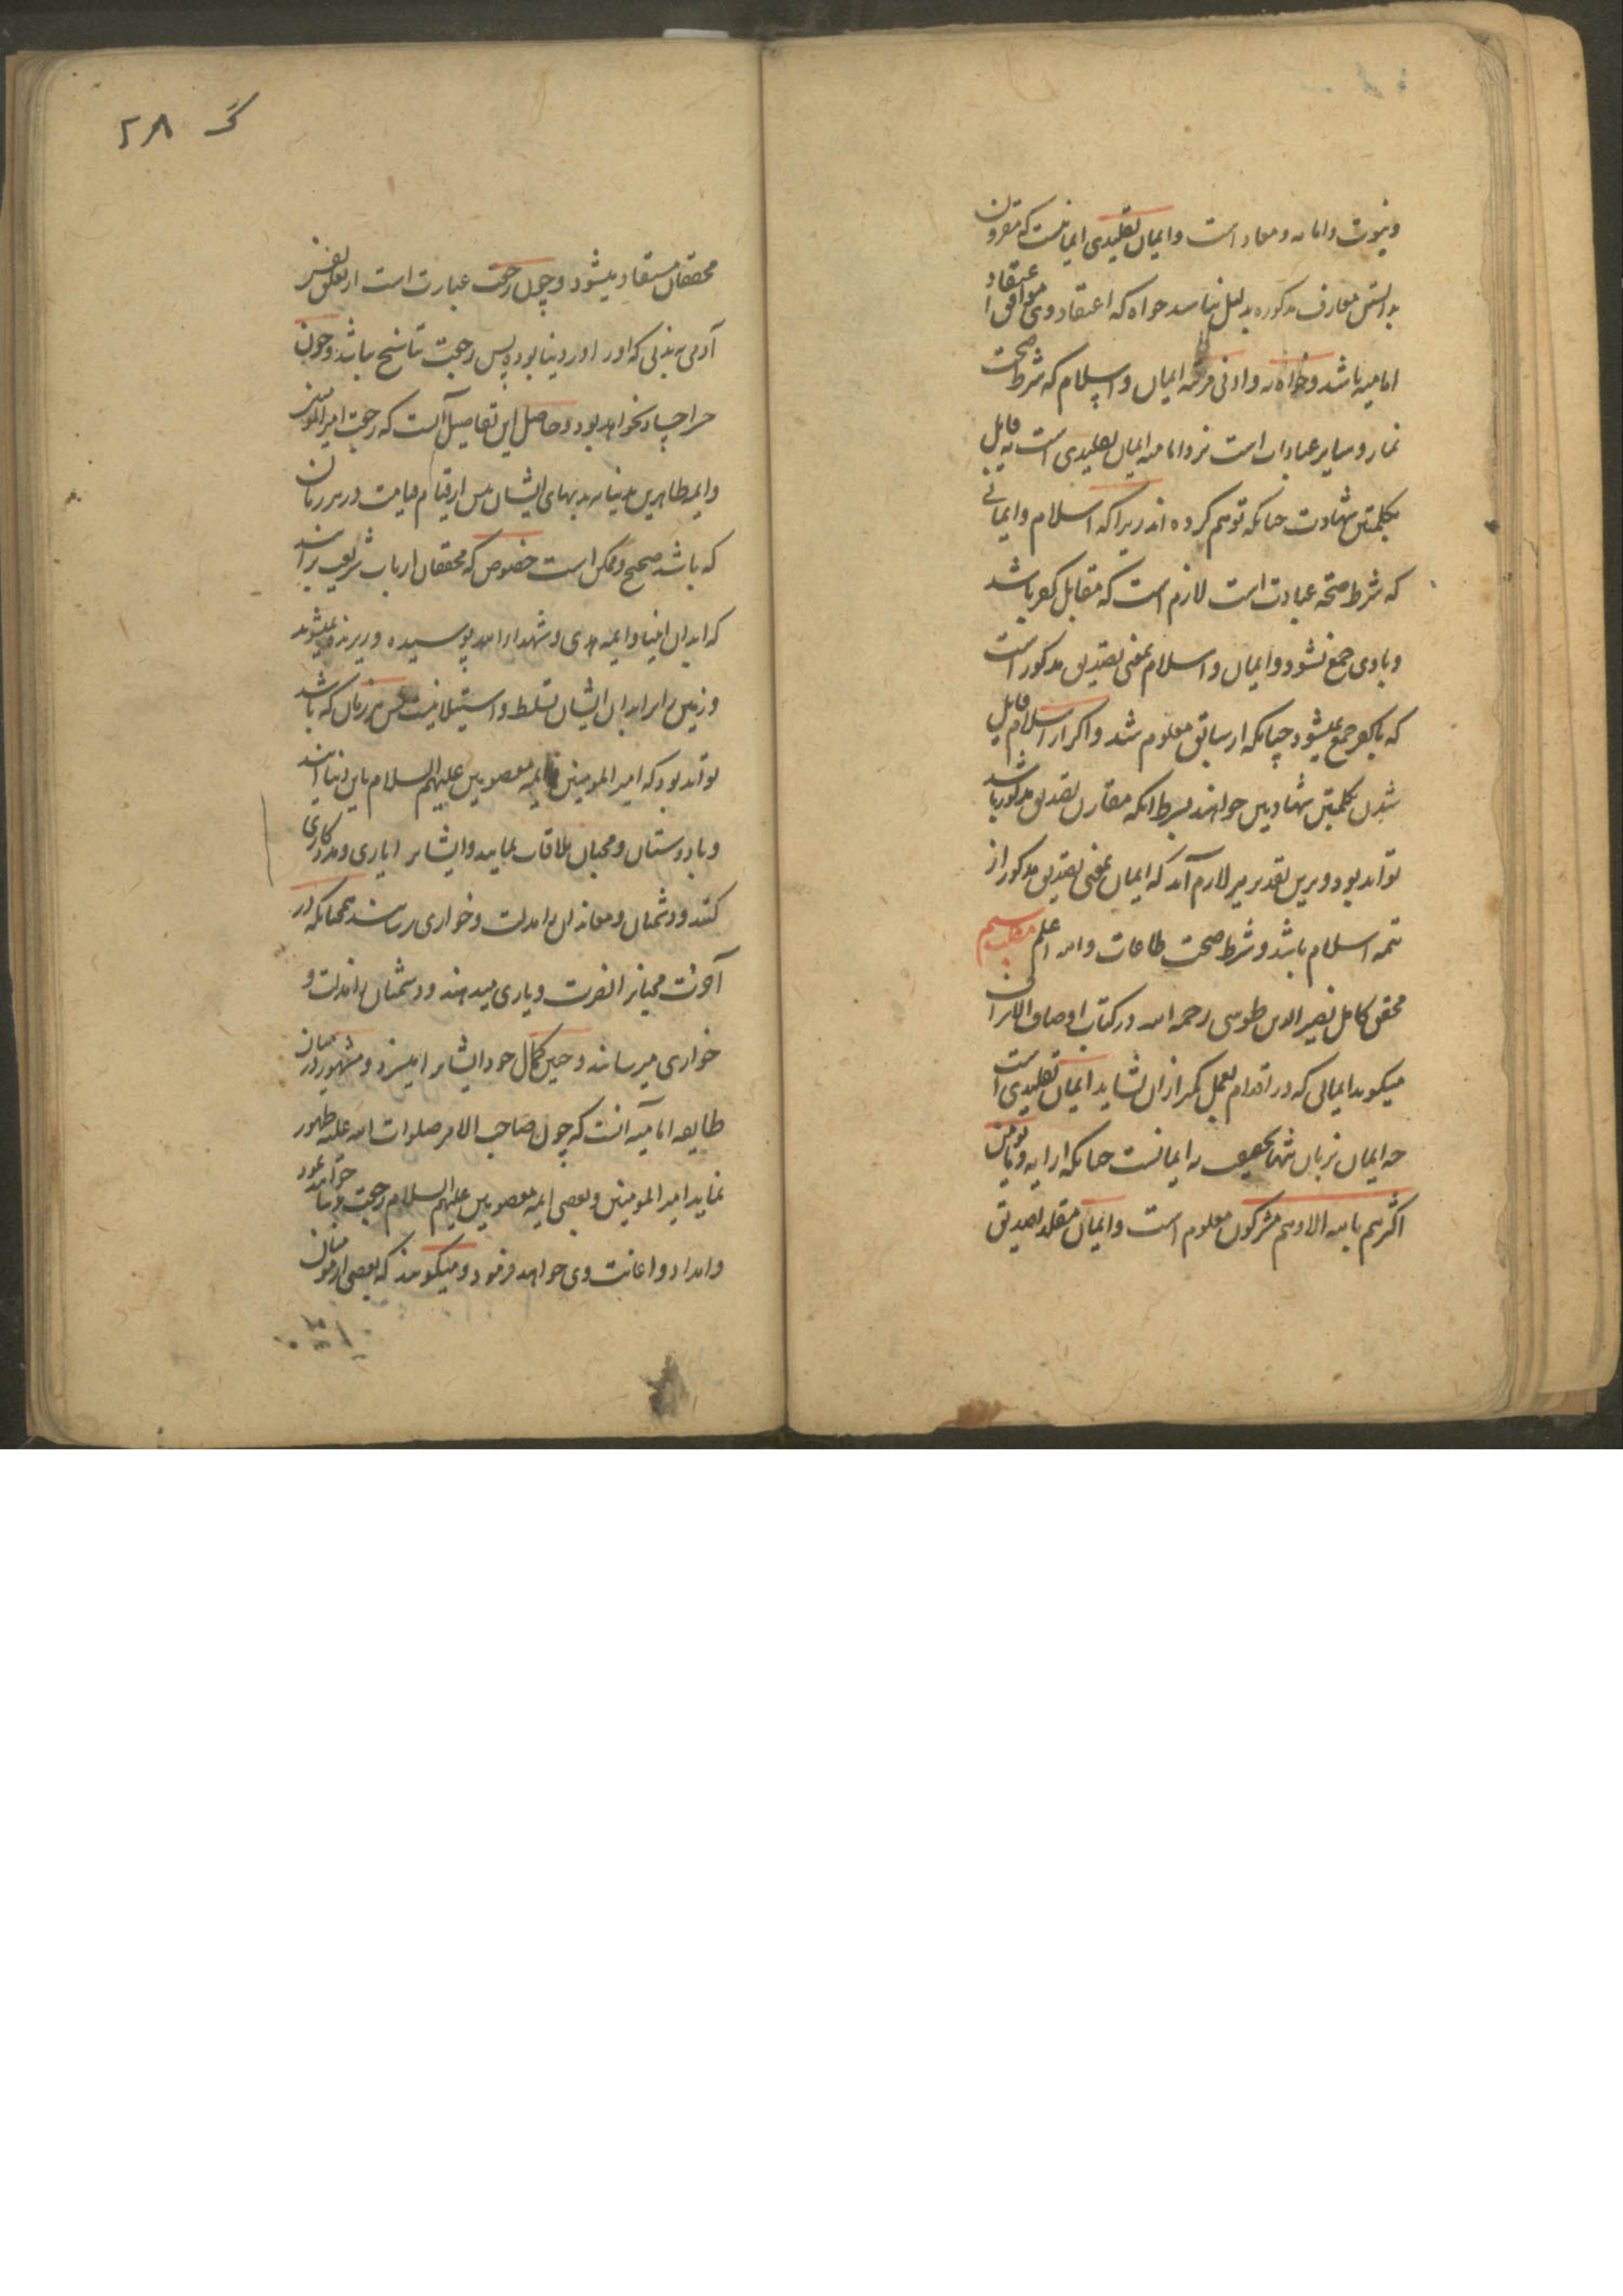 ونبوت وامامه ومعاد است وایمان تقلیدی ایمانیست که مقرون
بدانستن معارف مذکوره بدلیل نباشد خواه که اعتقاد وی موافق اعتقاد
امامیه باشد وخواه نه وادنی مرتبه ایمان واسلام که شرط صحت
نماز وسایر عبادات است نزد امامیه ایمان تقلیدی است نه قایل
بکلمتین شهادت چنانکه توهم کرده اند زیرا که اسلام وایمانی
که شرط صحة عبادت است لازم است که مقابل کفر باشد
وبا وی جمع نشود وایمان واسلام بمعنی تصدیق مذکور است
که با کفر جمع نمیشود چنانکه از سابق معلوم شد واکر از اسلام قایل
شدن بکلمتین شهادتین خواهند بشرط آنکه مقارن تصدیق مذکور باشد
تواند بود وبرین تقدیر نیز لازم آید که ایمان بمعنی تصدیق مذکور از
تتمه اسلام باشد وشرط صحت طاعات والله اعلم
محقق کامل نصیر الدین طوسی رحمه الله در کتاب اوصاف الاشراف
میکوید ایمانی که در اقدام بعمل کمتر از آن نشاید ایمان تقلیدی است
چه ایمان بزبان تنها بحقیقت نه ایمانست چنانکه از آیه وما یؤمن
اکثرهم بالله الا وهم مشرکون معلوم است وایمان مقلد تصدیق
ک ۲۸
محققان مستفاد میشود وچون رجعت عبارت است از تعلق نفس
آدمی به بدنی که او را در دنیا بوده پس رجعت تناسخ نباشد وچون
حشر اجساد نخواهد بود وحاصل این تفاصیل آنست که رجعت امیر المؤمنین
وایمه طاهرین بدنیا به بدنهای ایشان پیش از قیام قیامت در هر زمان
که باشد صحیح وممکن است خصوص که محققان ارباب شریعت برآنند
که ابدان انبیا وایمه هدی وشهدا را بپوسیده وریزنده نمیشوند
وزمین را بر ابدان ایشان تسلط واستیلا نیست پس هر زمان که باشد
تواند بود که امیر المومنین وایمه معصومین علیهم السلام باین دنیا آیند
وبا دوستان ومحبان ملاقات نمایند وایشانرا یاری ومددکاری
کنند ودشمنان ومعاندان را مذلت وخواری رسانند همچنانکه در
آخرت محبانرا نصرت ویاری میدهند ودشمنان را مذلت و
خواری میرسانند وحسن کمال خود ایشانرا میسزد ومشهور در میان
طایفه امامیه آنست که چون صاحب الامر صلوات الله علیه ظهور
نماید امیر المومنین وبعضی ایمه معصومین علیهم السلام رجعت بدنیا خواهند نمود
وامداد واعانت وی خواهند فرمود ومیکویند که بعضی از مؤمنان